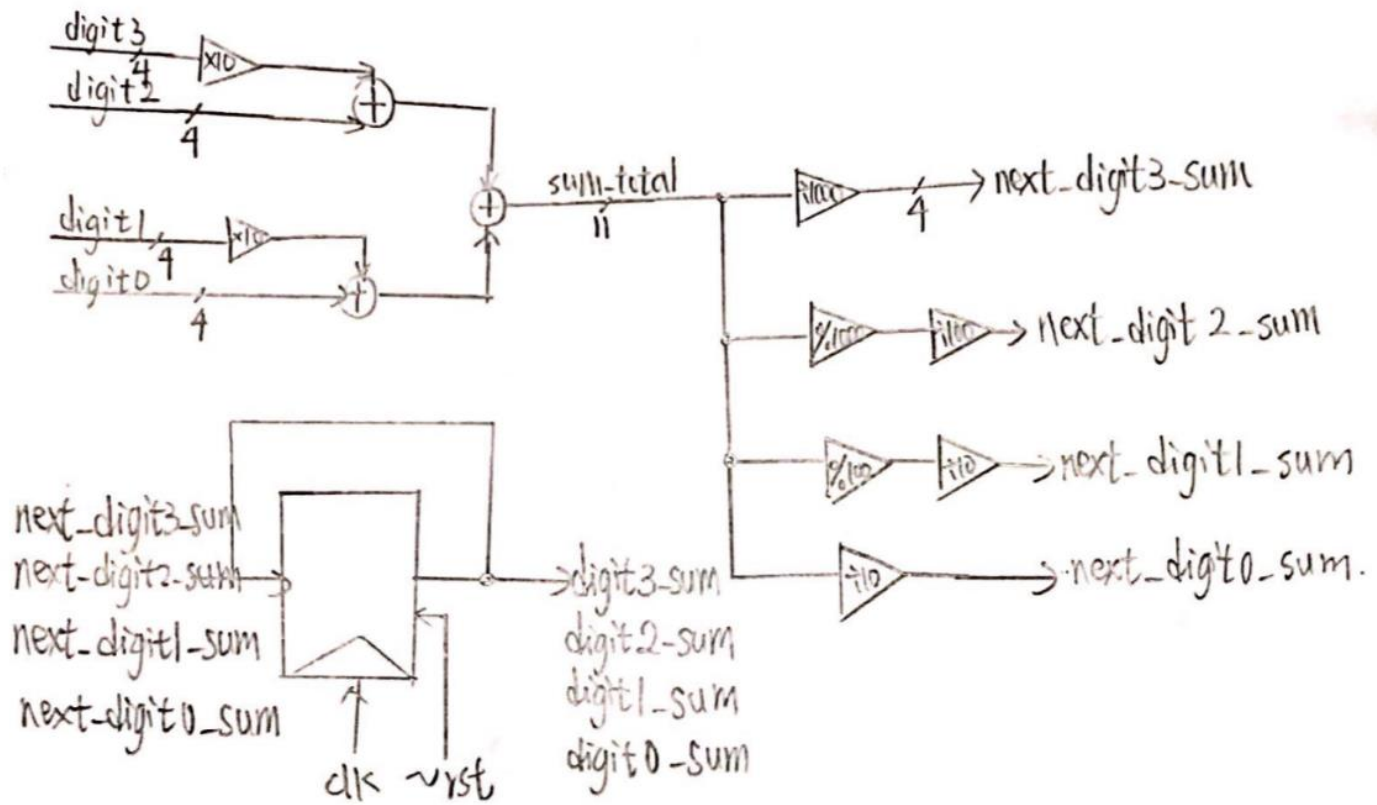 digit3
4
×10
digit2
4
+
digit1
4
×10
digit0
4
+
+
sum_total
11
÷1000
4
next_digit3_sum
%1000
÷100
next_digit2_sum
%100
÷10
next_digit1_sum
÷10
next_digit0_sum.
next_digit3_sum
next_digit2_sum
next_digit1_sum
next_digit0_sum
clk
~rst
digit3_sum
digit2_sum
digit1_sum
digit0_sum